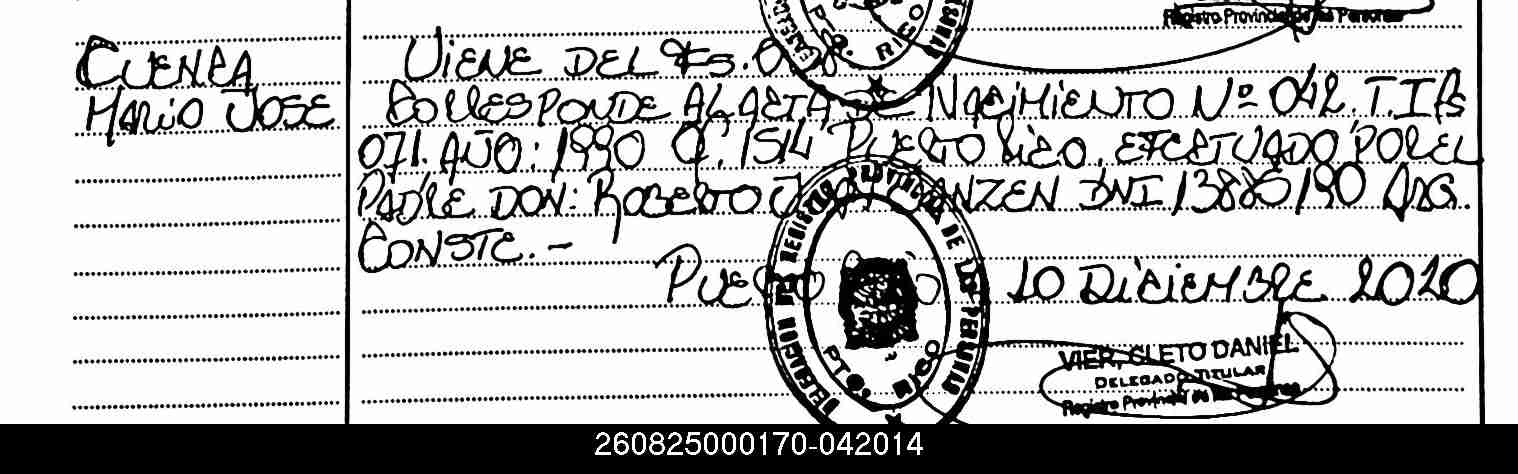 Registro Provincial de las Personas
PTO. RICO
CUENCA
MARIO JOSE
VIENE DEL Fs.
CORRESPONDE AL ACTA DE NACIMIENTO Nº 042. T. I Fs
071. AÑO: 1990 Of. 1514 PUERTO RICO. EFECTUADO POR EL
PADRE DON: ROBERTO ANZEN DNI 13886190 ARG.
CONSTE.-
PUERTO 10 DICIEMBRE 2010
DELEGACION DEL REGISTRO PROVINCIAL DE LAS PERSONAS
PTO. RICO
VIER, CLETO DANIEL
DELEGADO TITULAR
Registro Provincial de las Personas
260825000170-042014